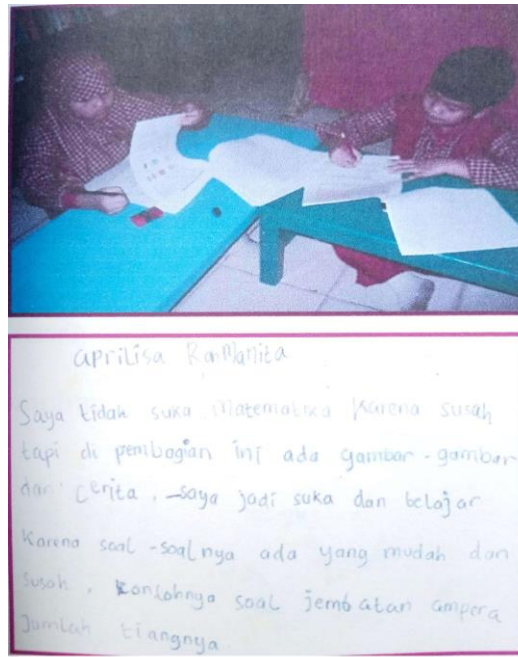 aprilisa
Saya tidak suka matematika karena susah
tapi di pembagian ini ada gambar-gambar
dan cerita, saya jadi suka dan belajar
karena soal-soalnya ada yang mudah dan
susah, contohnya soal jembatan ampera
Jumlah tiangnya.